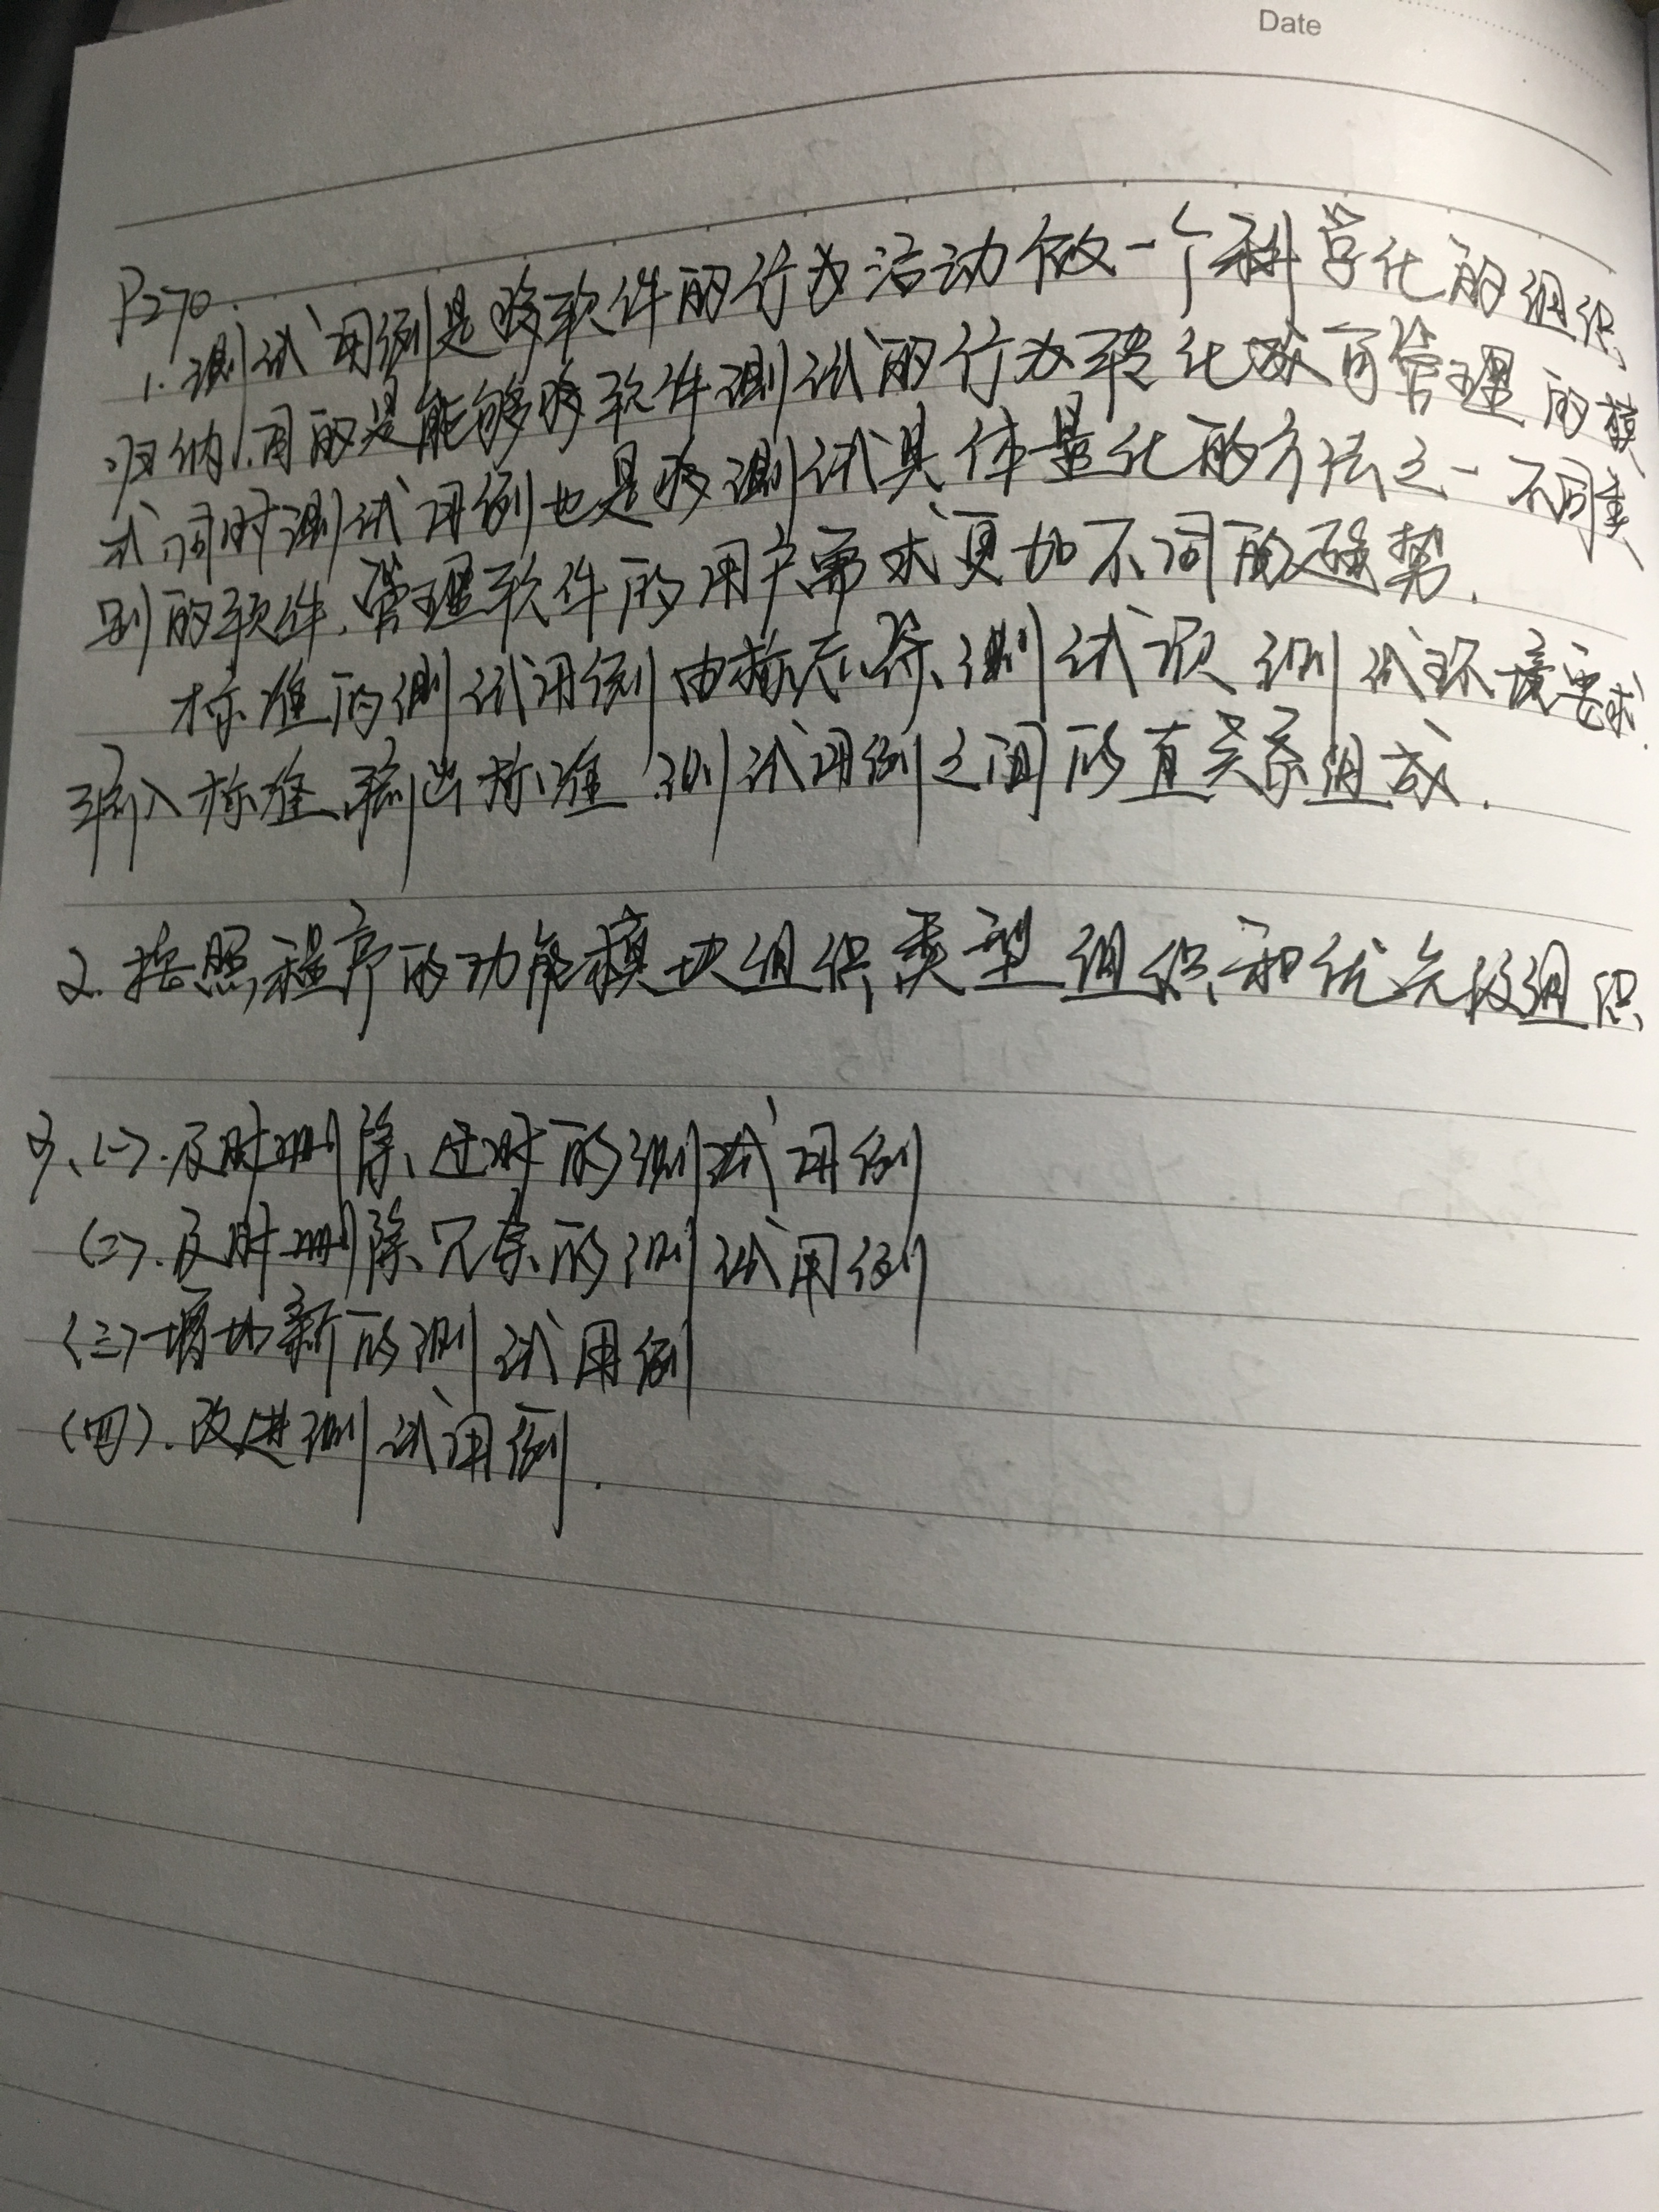 Date
P270.
1. 测试用例是将软件的行为活动做一个科学化的组织
归纳,目的是能够将软件测试的行为转化成可管理的模
式,同时测试用例也是将测试具体量化的方法之一不同类
别的软件,管理软件的用户需求更加不同的趋势.
标准的测试用例由标志符、测试项 测试环境要求.
输入标准、输出标准、测试用例之间的直关系组成.
2. 按照程序的功能模块组织,类型组织、和优先级组织
(一).及时删除、过时的测试用例
(二).及时删除冗余的测试用例
(三)增加新的测试用例
(四).改进测试用例.